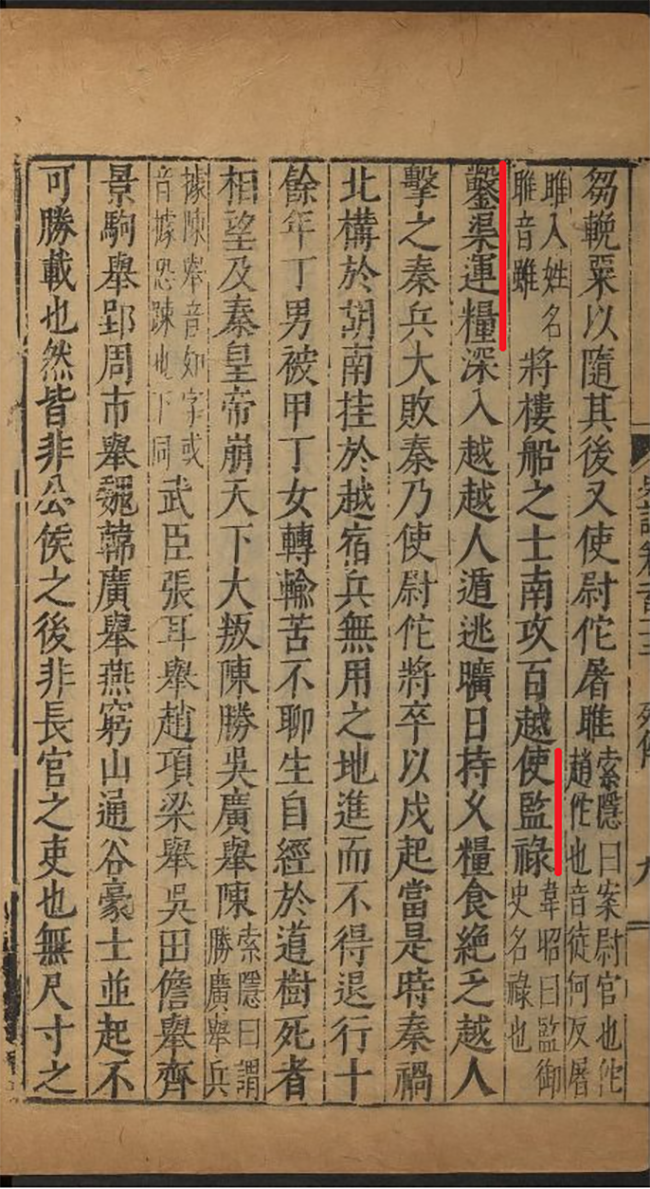 芻輓粟以隨其後又使尉佗屠睢索隱曰案尉官也佗趙佗也音徒何反屠
睢入姓名睢音雖將樓船之士南攻百越使監祿韋昭曰監御史名祿也
鑿渠運糧深入越越人遁逃曠日持久糧食絕乏越人
擊之秦兵大敗秦乃使尉佗將卒以戍起當是時秦禍
北構於胡南挂於越宿兵無用之地進而不得退行十
餘年丁男被甲丁女轉輸苦不聊生自經於道樹死者
相望及秦皇帝崩天下大叛陳勝吳廣舉陳索隱曰謂勝廣舉兵
據陳舉音如字或音據恐踈也下同武臣張耳舉趙項梁舉吳田儋舉齊
景駒舉郢周市舉魏韓廣舉燕窮山通谷豪士並起不
可勝載也然皆非公侯之後非長官之吏也無尺寸之